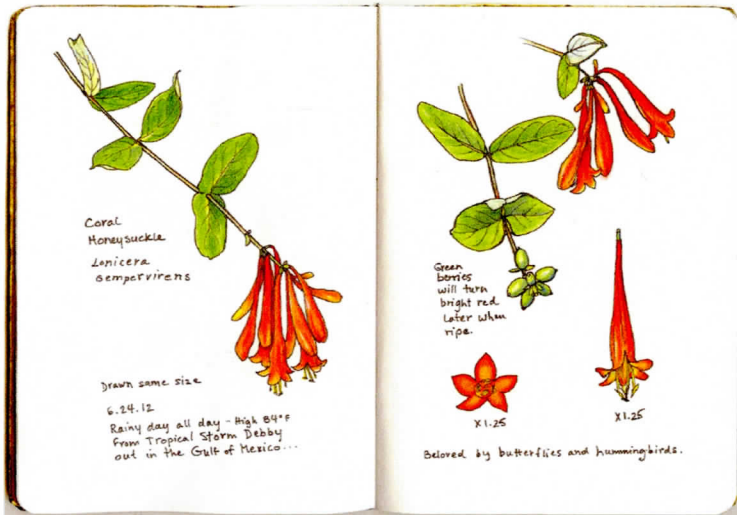 Coral
Honeysuckle
Lonicera
sempervirens
Drawn same size
6.24.12
Rainy day all day - High 84°F
From Tropical Storm Debby
out in the Gulf of Mexico...
Green
berries
will turn
bright red
later when
ripe.
X1.25
X1.25
Beloved by butterflies and hummingbirds.